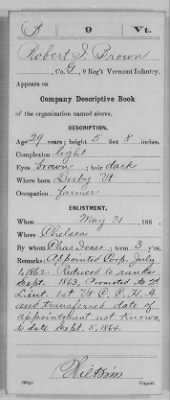 B 9 Vt.
Robert I. Brown
Co. G, 9 Reg't Vermont Infantry.
Appears on
Company Descriptive Book
of the organization named above.
DESCRIPTION.
Age 29 years; height 5 feet 8 inches.
Complexion light
Eyes brown; hair dark
Where born Derby Vt
Occupation farmer
ENLISTMENT.
When May 31, 186 .
Where Chelsea
By whom Chas ; term 3 y'rs.
Remarks: Appointed Corp. July
1, 1862. Reduced to ranks
Sept. 1863, Promoted to 2d
Lieut. 1st U. S. C. H. A
and transferred date of
appointment not known
to date Sept. 5, 1864.
Copyist.